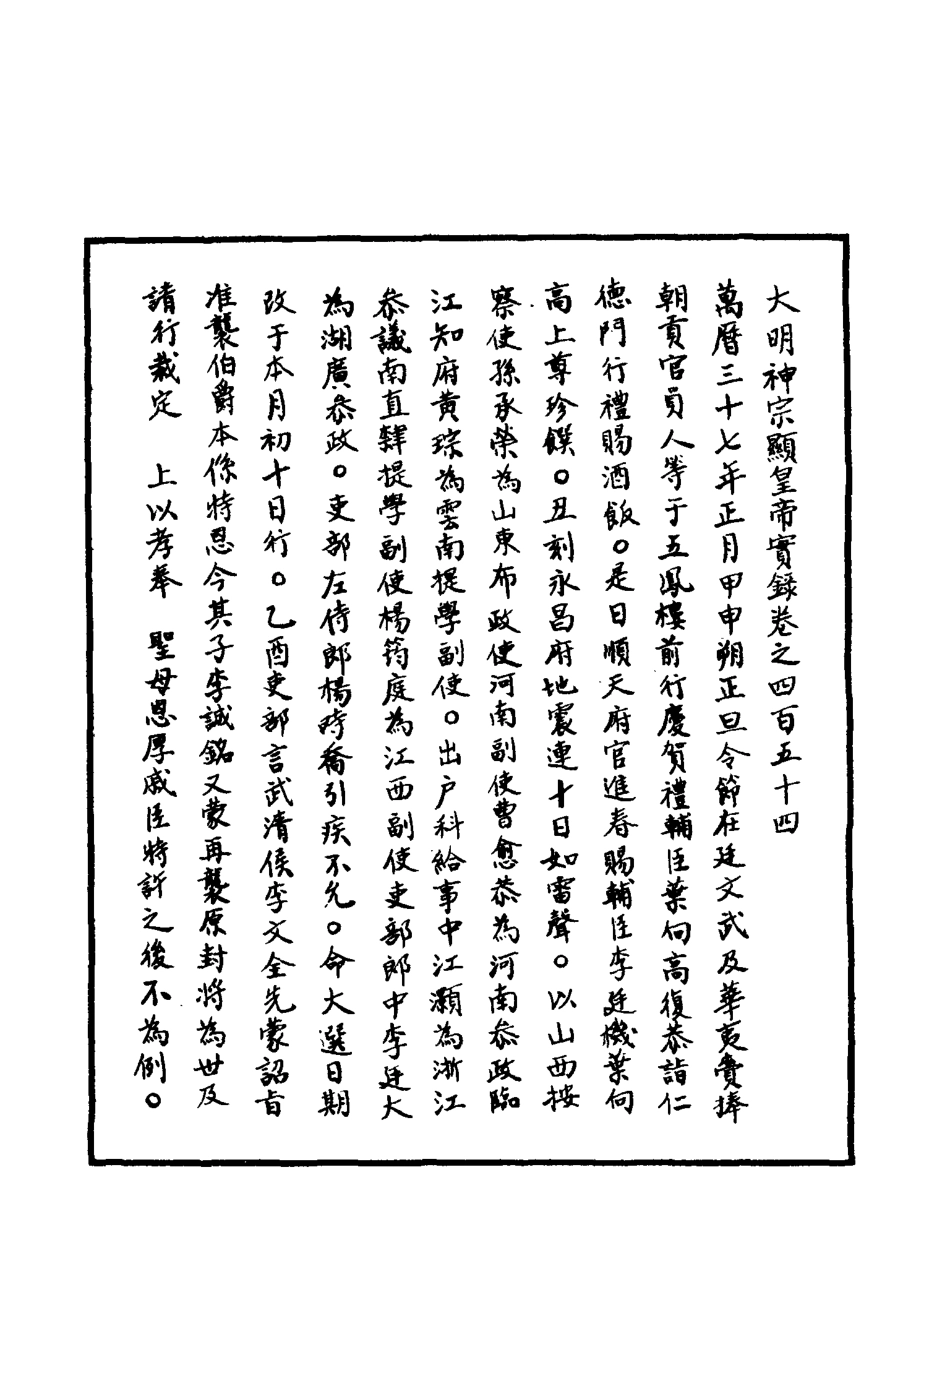 大明神宗顯皇帝實錄卷之四百五十四
萬曆三十七年正月甲申朔正旦令節在廷文武及華夷賫捧
朝貢官員人等于五鳳樓前行慶賀禮輔臣葉向高復恭詣仁
德門行禮賜酒飯○是日順天府官進春賜輔臣李廷機葉向
高上尊珍饌○丑刻永昌府地震連十日如雷聲○以山西按
察使孫承榮為山東布政使河南副使曹愈恭為河南叅政臨
江知府黃琮為雲南提學副使○出戶科給事中江灝為浙江
叅議南直隸提學副使楊筠庭為江西副使吏部郎中李廷大
為湖廣叅政○吏部左侍郎楊時喬引疾不允○命大選日期
改于本月初十日行○乙酉吏部言武清侯李文全先蒙詔旨
准襲伯爵本係特恩今其子李誠銘又蒙再襲原封將為世及
請行裁定　上以孝奉　聖母恩厚戚臣特許之後不為例○